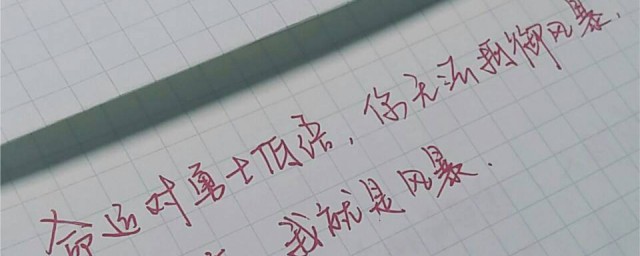 命运对勇士低语，你无法抵御风暴.
我就是风暴.